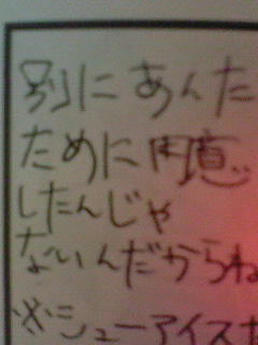 別にあんた
ために用意
したんじゃ
ないんだからね
※シューアイスだ